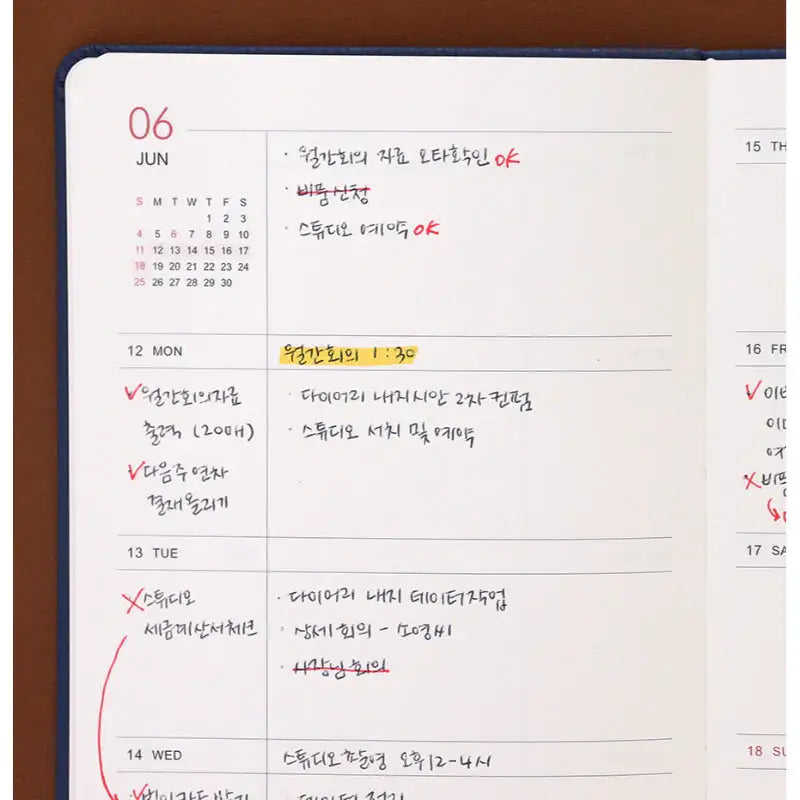 06
JUN
S M T W T F S
1 2 3
4 5 6 7 8 9 10
11 12 13 14 15 16 17
18 19 20 21 22 23 24
25 26 27 28 29 30
· 월간회의 자료 오타확인 OK
· 비품신청
· 스튜디오 예약 OK
12 MON
월간회의 1:30
월간회의자료
출력 (20매)
다음주 연차
결재올리기
· 다이어리 내지시안 2차 컨펌
· 스튜디오 서치 및 예약
13 TUE
스튜디오
세금계산서체크
· 다이어리 내지 데이터작업
· 상세회의 - 소영씨
· 사장님회의
14 WED
스튜디오 오후12-4시
15 TH
16 FR
17 SA
18 SU